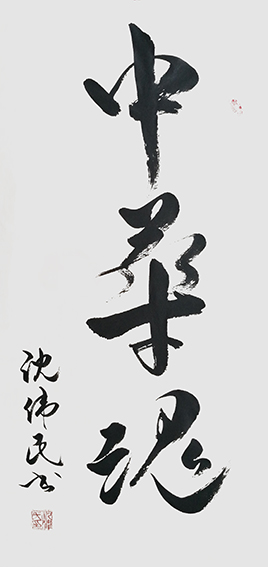 中華魂
沈伟民书